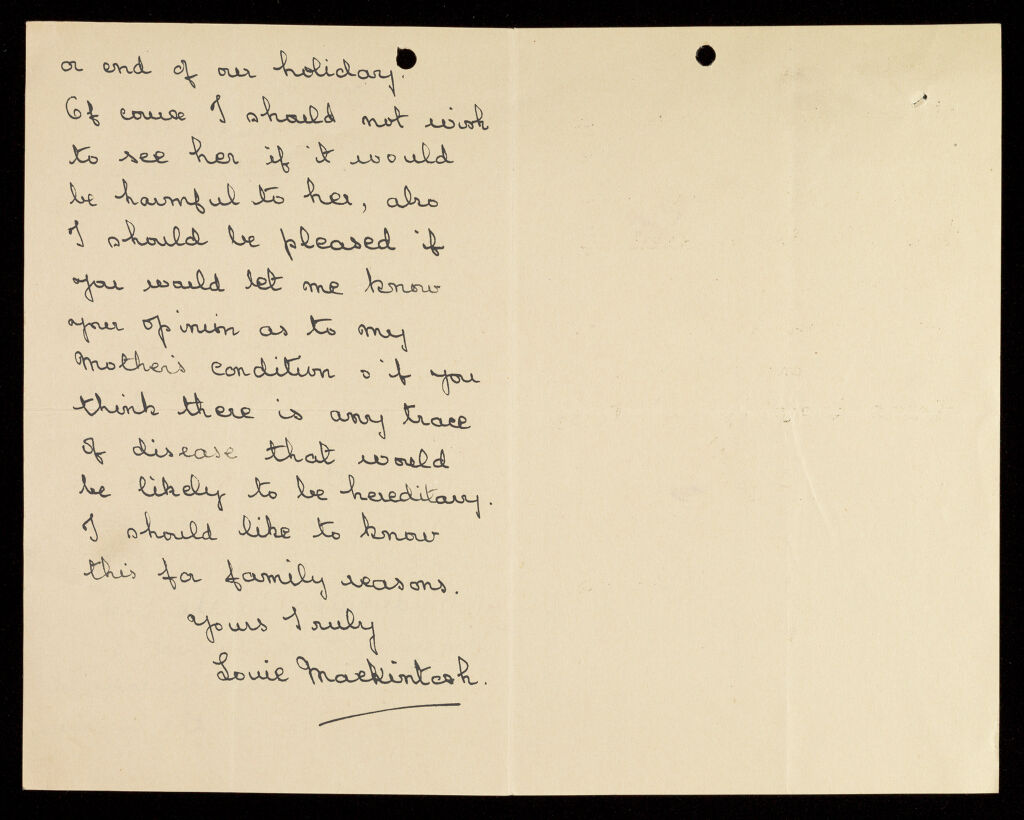 or end of our holiday.
Of course I should not wish
to see her if it would
be harmful to her, also
I should be pleased if
you would let me know
your opinion as to my
Mother's condition & if you
think there is any trace
of disease that would
be likely to be hereditary.
I should like to know
this for family reasons.
Yours Truly
Louie Mackintosh.